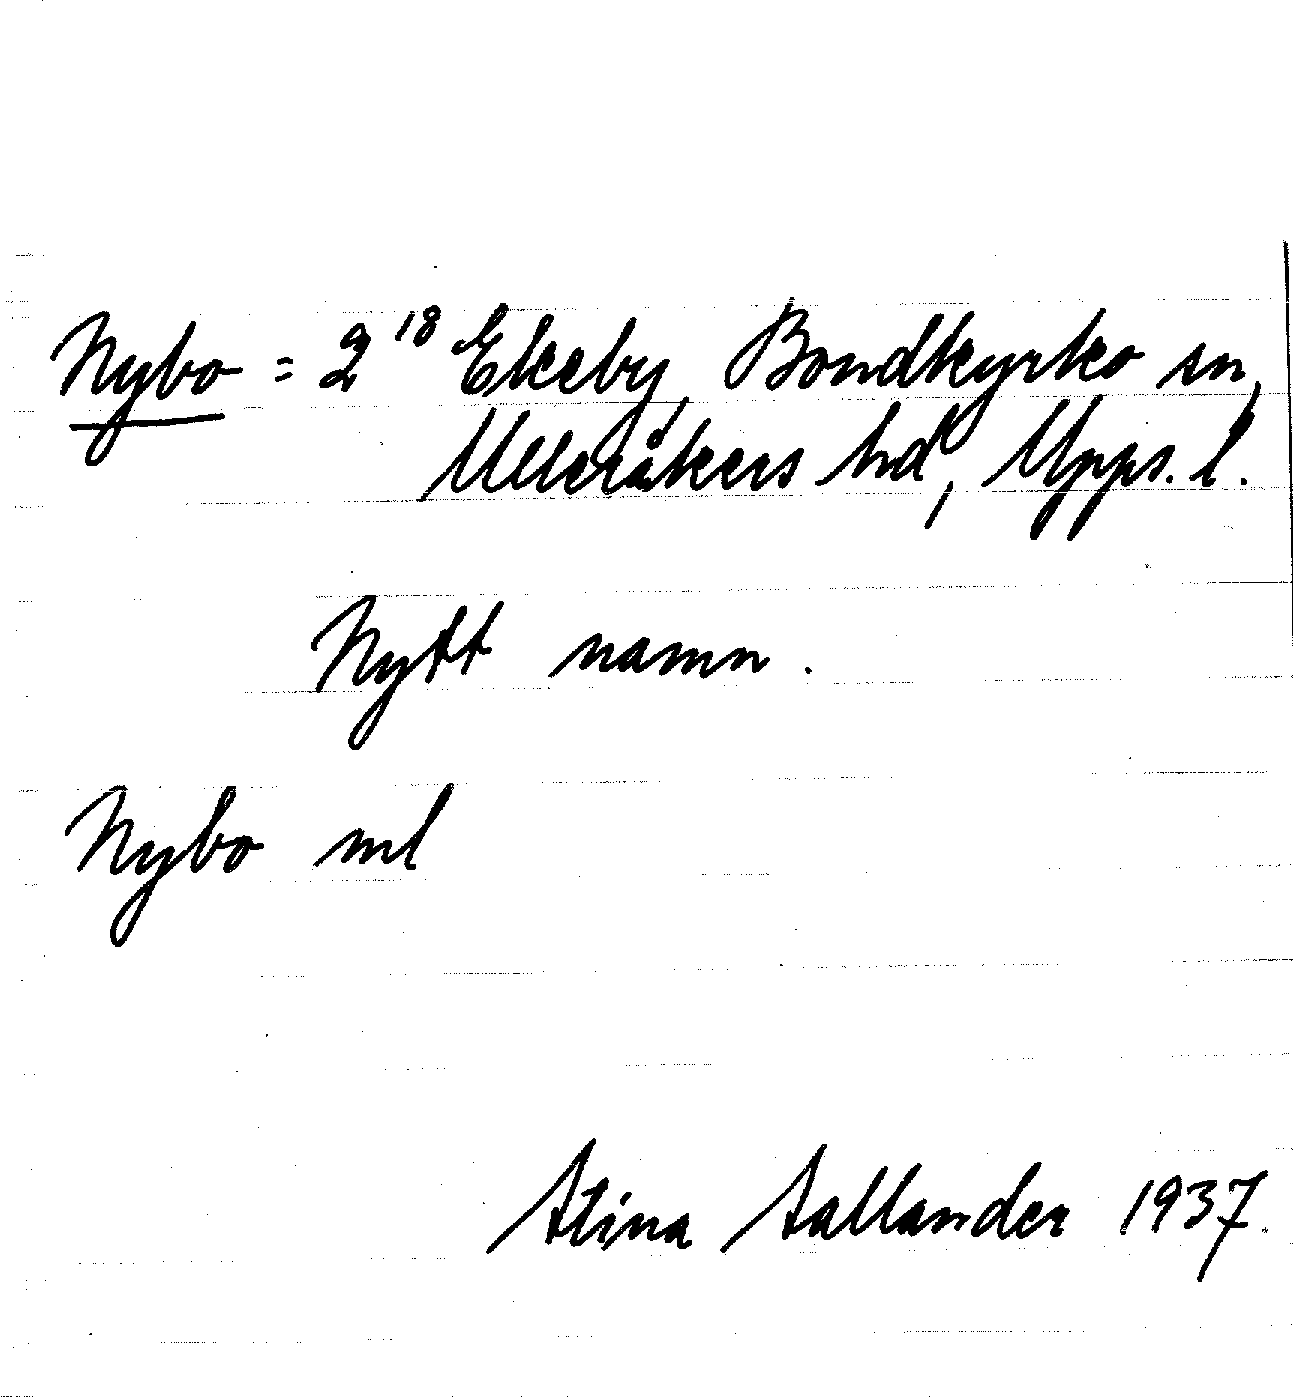 Nybo = 2¹⁸ Ekeby, Bondkyrko sn,
Ulleråkers hd, Upps. l.
Nytt namn.
Nybo ml
Stina Sallander 1937.